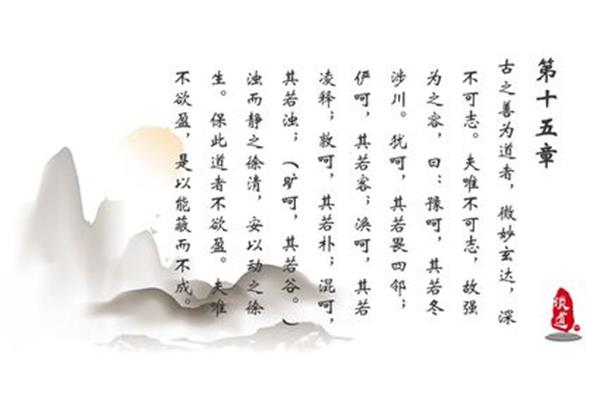 第十五章
古之善为道者，微妙玄达，深
不可志。夫唯不可志，故强
为之容，曰：豫呵，其若冬
涉川。犹呵，其若畏四邻；
俨呵，其若客；涣呵，其若
凌释；敦呵，其若朴；混呵，
其若浊；（旷呵，其若谷。）
浊而静之徐清，安以动之徐
生。保此道者不欲盈。夫唯
不欲盈，是以能蔽而不成。
道